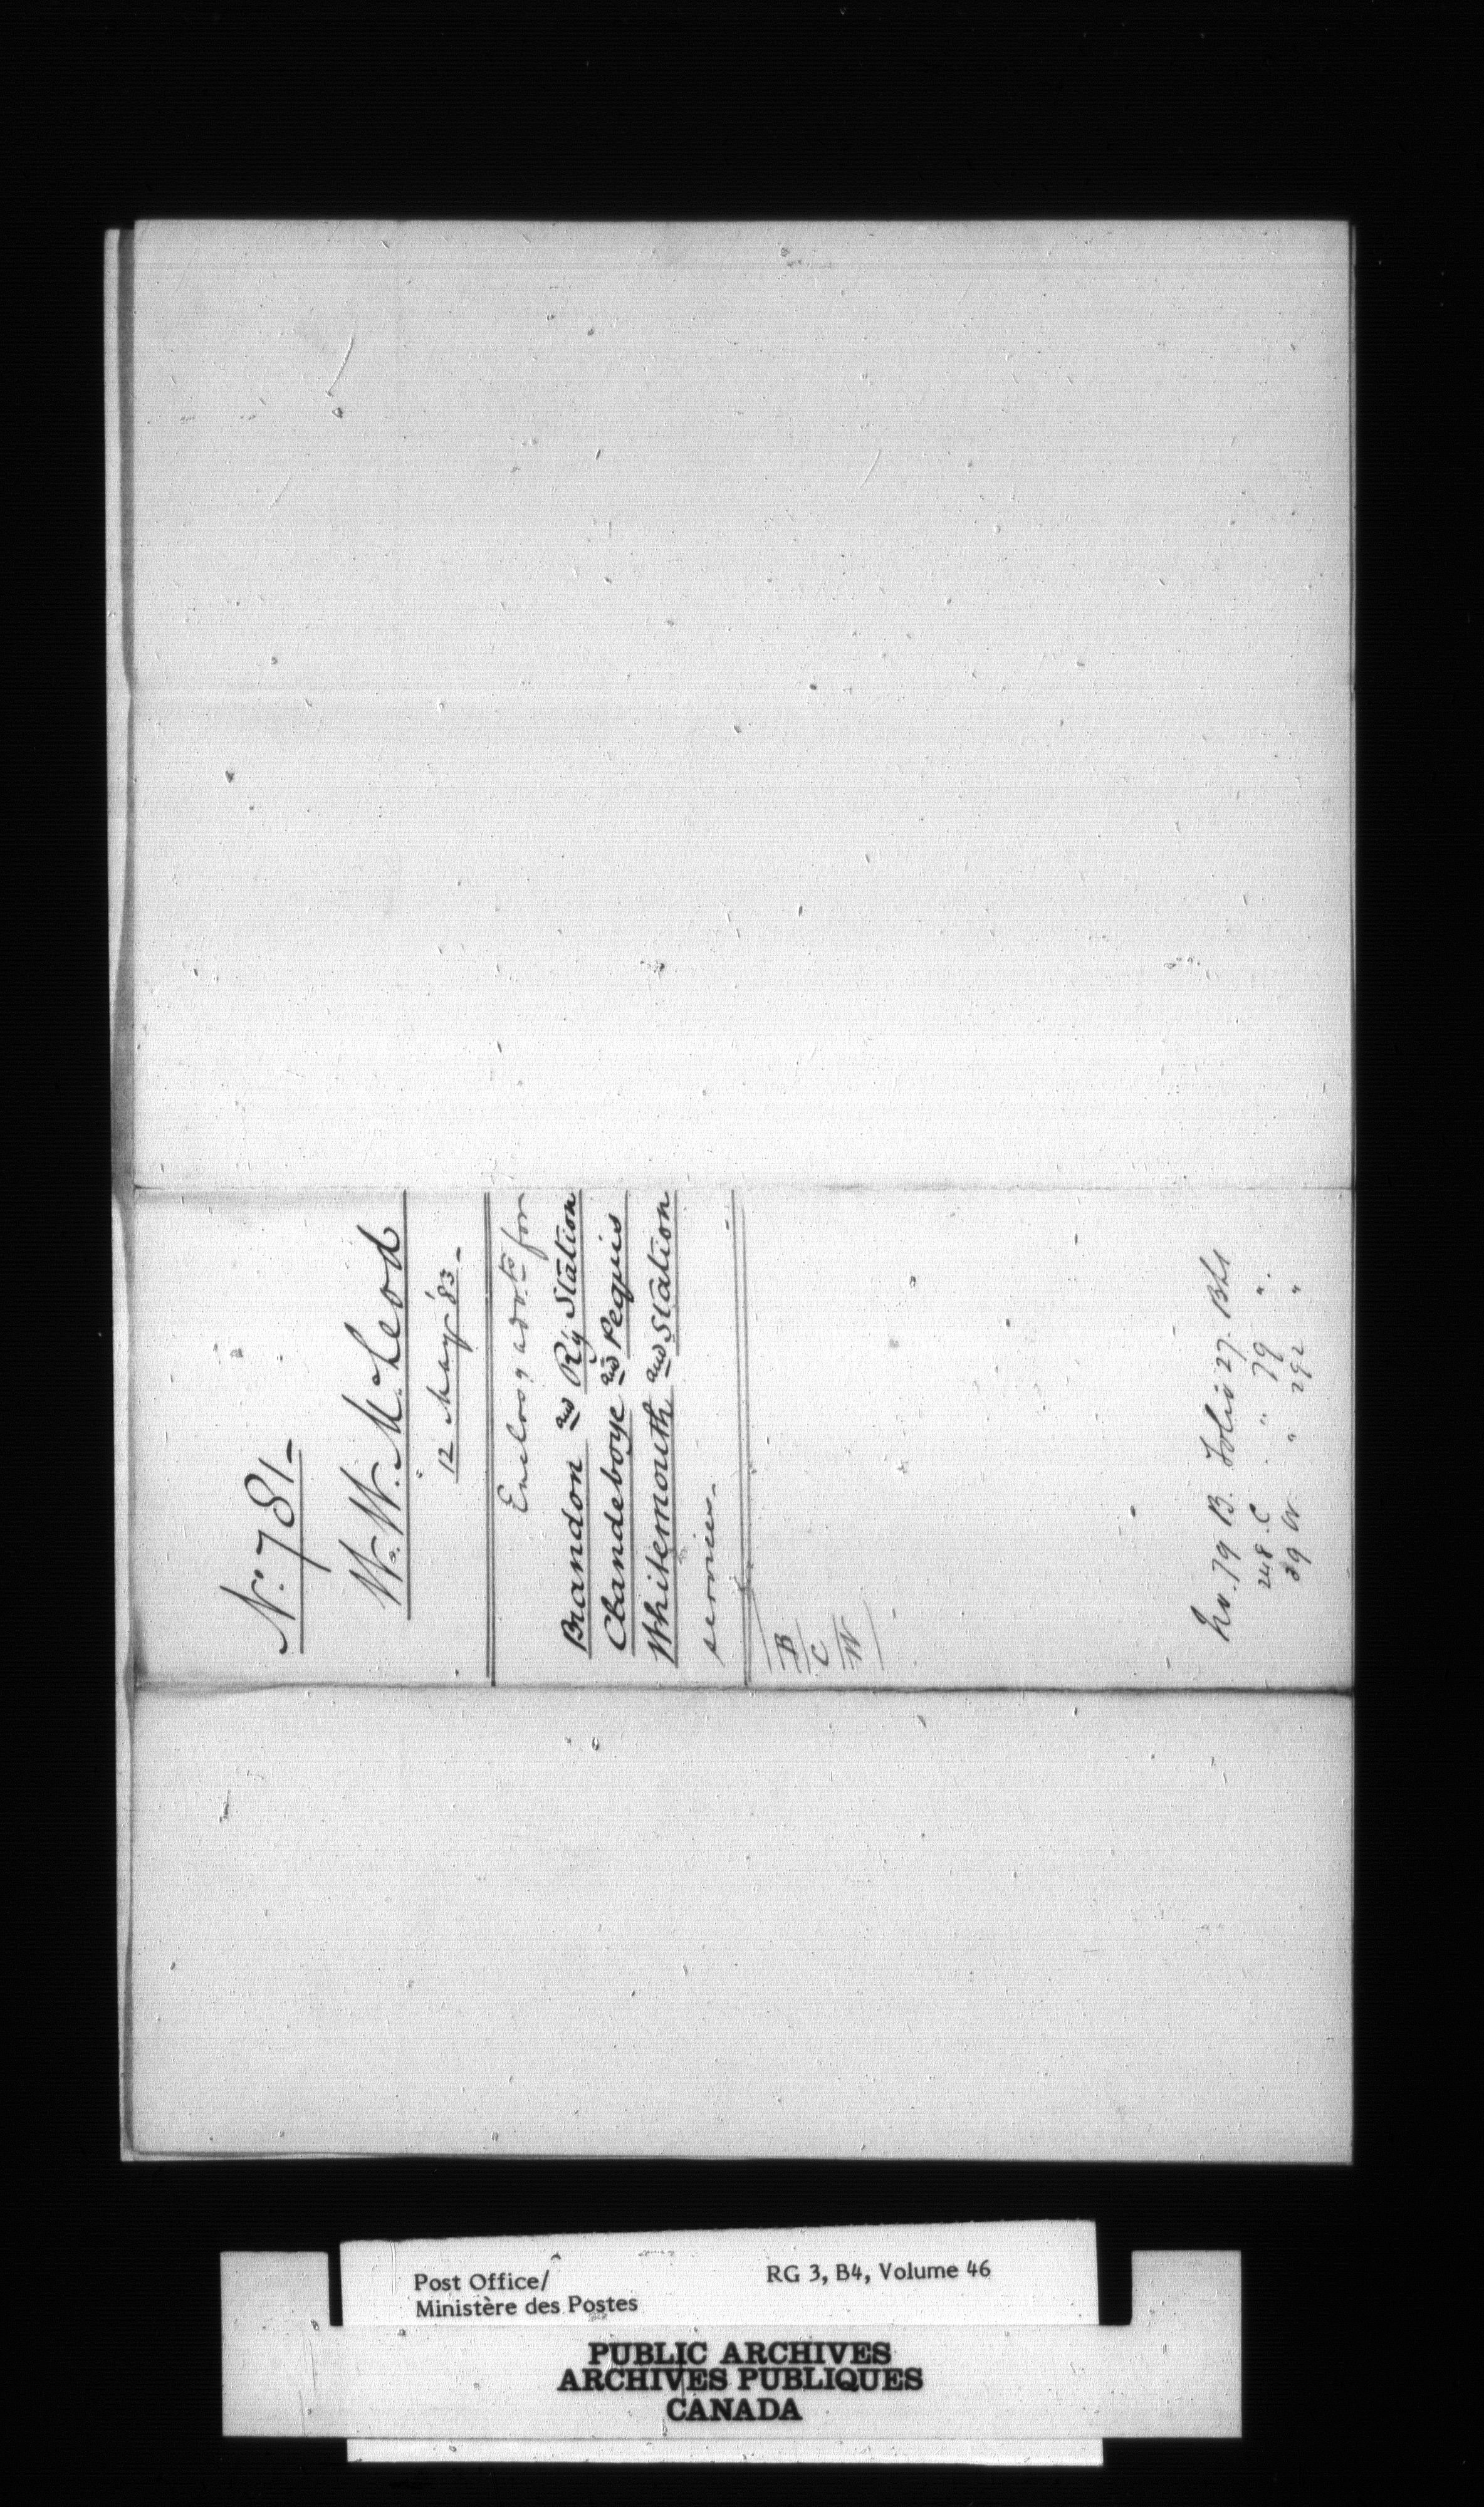 No. 781-
W. W. McLeod
12 May '83-
Enclosg advts for
Brandon and R'y Station
Clandeboye and Peguis
Whitemouth and Station
service.
B
C
W
No. 79 B. Folio 27. BLS
248 C " 79 "
39 W. " 292 "
Post Office/
Ministère des Postes
RG 3, B4, Volume 46
PUBLIC ARCHIVES
ARCHIVES PUBLIQUES
CANADA